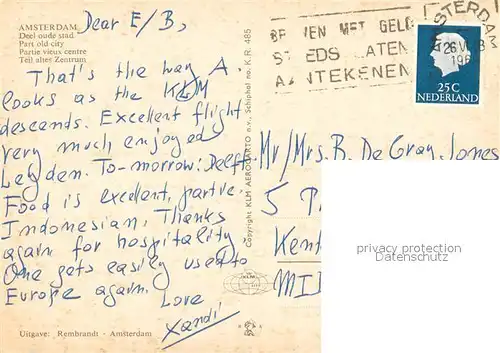 AMSTERDAM
Deel oude stad
Part old city
Partie vieux centre
Teil altes Zentrum
Dear E/B,
That's the way A.
looks as the KLM
descends. Excellent flight
very much enjoyed
Leyden. To-morrow: Delft.
Food is excellent, partic.
Indonesian. Thanks
again for hospitality
One gets easily used to
Europe again.
Love
Xandi
Uitgave: Rembrandt - Amsterdam
Copyright KLM AEROCARTO n.v., Schiphol no. K.R. 485
MET GELD
AANTEKENEN
AMSTERDAM
26 VII
196
25C
NEDERLAND
Mr/Mrs. B. De Gray. Jones
5 P
Kent
MID
privacy protection
Datenschutz